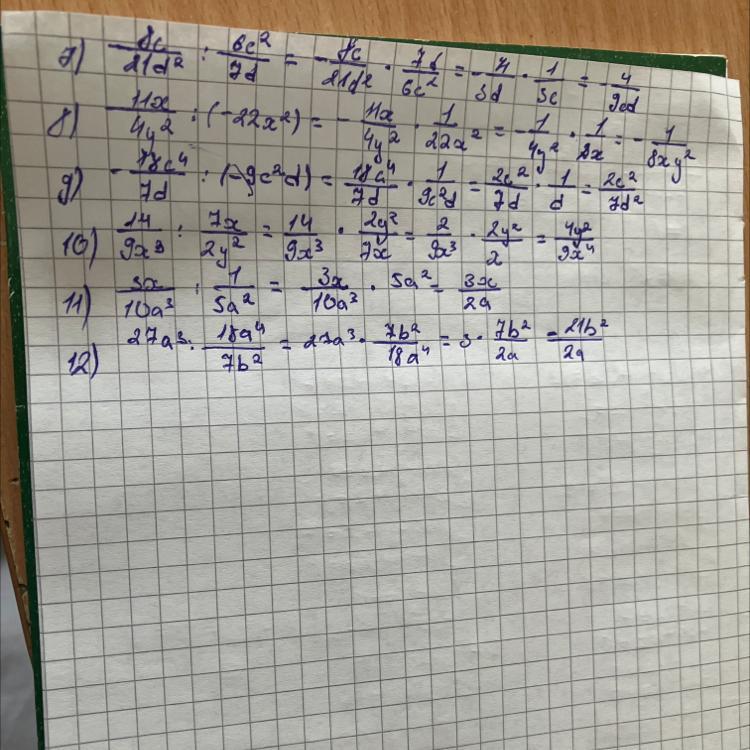 7) -8c/21d² : 6c²/7d = -8c/21d² · 7d/6c² = -4/3d · 1/3c = -4/9cd
8) 11x/4y² : (-22x²) = -11x/4y² · 1/22x² = -1/4y² · 1/2x = -1/8xy²
9) -18c⁴/7d : (-9c²d) = 18c⁴/7d · 1/9c²d = 2c²/7d · 1/d = 2c²/7d²
10) 14/9x³ : 7x/2y² = 14/9x³ · 2y²/7x = 2/9x³ · 2y²/2 = 4y²/9x⁴
11) 3x/10a³ : 1/5a² = 3x/10a³ · 5a² = 3x/2a
12) 27a³ : 18a⁴/7b² = 27a³ · 7b²/18a⁴ = 3 · 7b²/2a = 21b²/2a